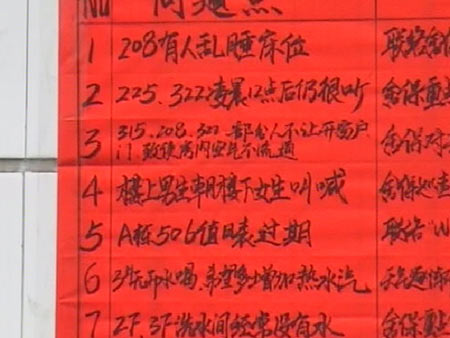 NO 问题点
1 208有人乱睡床位 联络舍
2 225、322凌晨12点后仍很吵 舍保重
3 315、208、322一部分人不让开窗户
门致使房内空气不流通 舍保对
4 楼上男生朝楼下女生叫喊 舍保
5 A栋506值日表过期 联络"W
6 3F无印水喝,希望多增加热水汽
7 2F、3F洗水间经常没有水 舍保重点